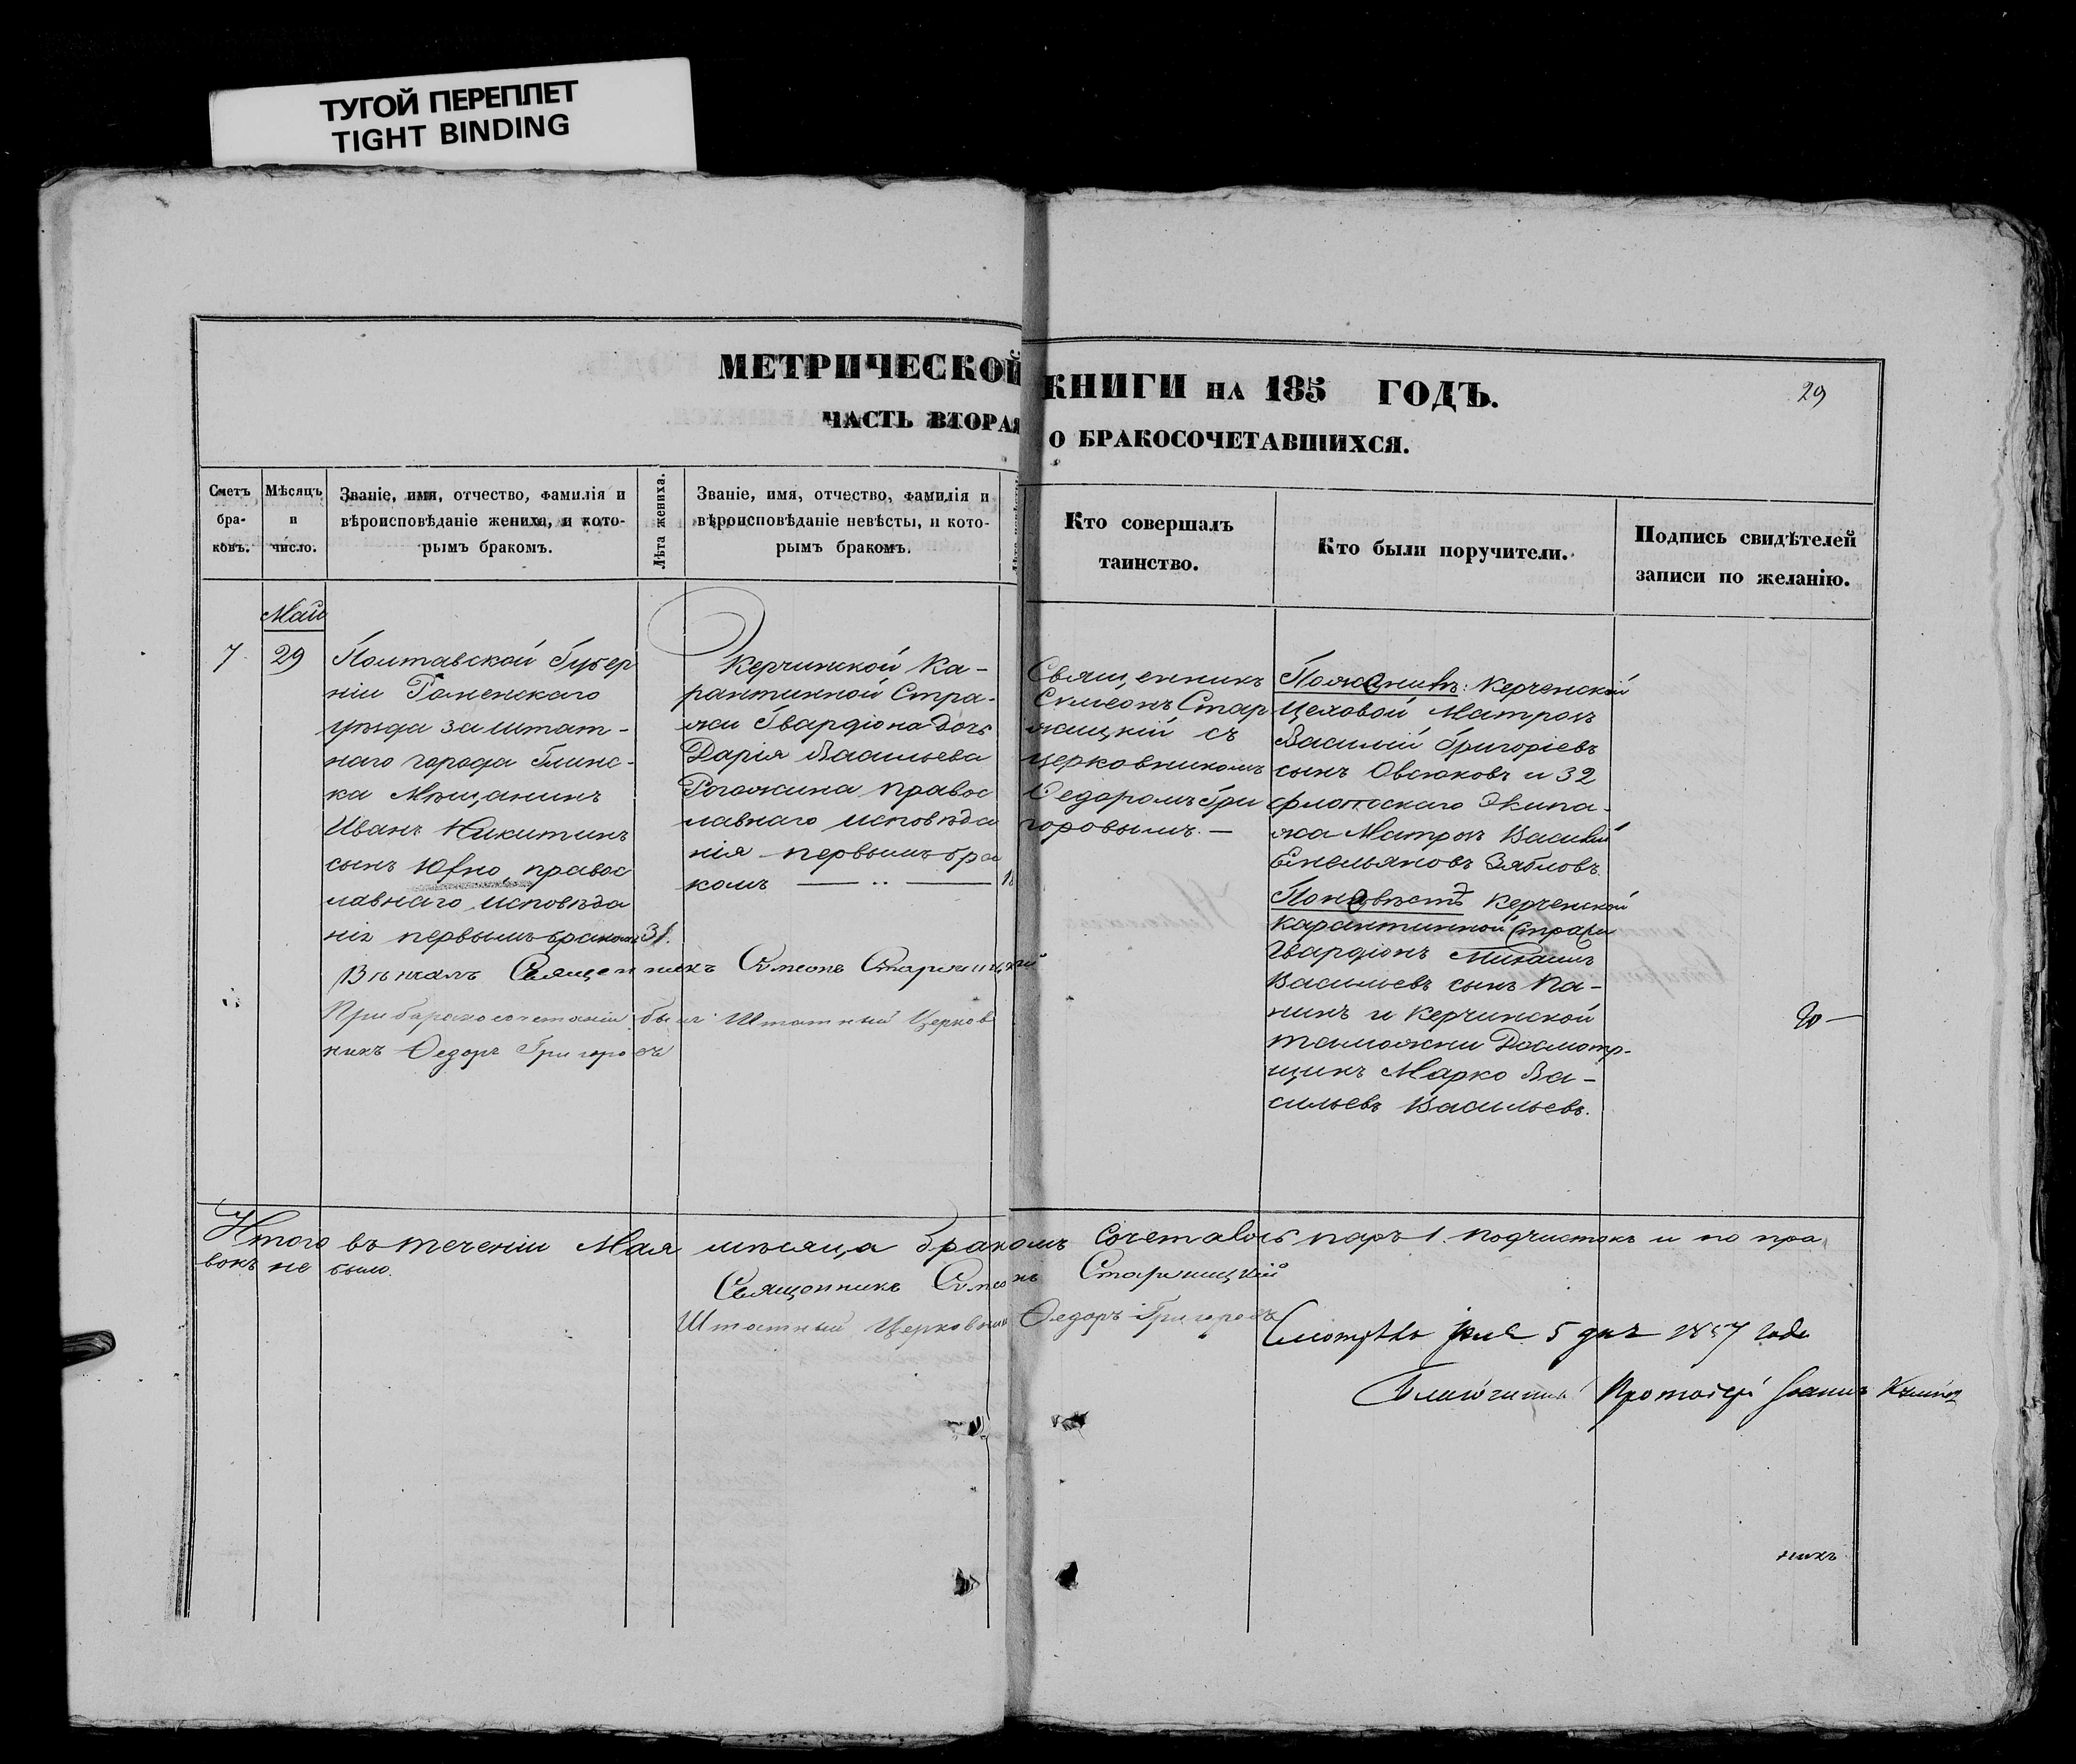 ТУГОЙ ПЕРЕПЛЕТ
TIGHT BINDING
МЕТРИЧЕСКОЙ КНИГИ НА 185 ГОДЪ.
29
ЧАСТЬ ВТОРАЯ О БРАКОСОЧЕТАВШИХСЯ.
Счетъ
бра-
ковъ.
Мѣсяцъ
и
число.
Званіе, имя, отчество, фамилія и
вѣроисповѣданіе жениха, и кото-
рымъ бракомъ.
Лѣта жениха.
Званіе, имя, отчество, фамилія и
вѣроисповѣданіе невѣсты, и кото-
рымъ бракомъ.
Кто совершалъ
таинство.
Кто были поручители.
Подпись свидѣтелей
записи по желанію.
Май
7
29
Полтавской Губер
ніи Роменскаго
уѣзда заштат-
наго города Глинс-
ка Мѣщанинъ
Иванъ Никитинъ
сынъ Юхно, правос
лавнаго исповѣда
нія первымъ бракомъ
31.
Керчинской Ка-
рантинной Стра-
жи Гвардіона дочь
Дарія Васильева
Рогожина правос
лавнаго исповѣда
нія первымъ бра
комъ
Священникъ
Сѵмеонъ Стар
жицкій съ
церковникомъ
Ѳедоромъ Гри
горовымъ. —
По женихѣ: Керченской
Цеховой Матрозъ
Василій Григоріевъ
сынъ Овсюковъ и 32
флотскаго Экипа-
жа Матрозъ Василій
Емельяновъ Зябловъ.
По невѣстѣ Керченской
Карантинной Стражи
Гвардіонъ Михаилъ
Васильевъ сынъ Па-
нинъ и Керчинской
таможни Досмотр-
щикъ Марко Ва-
сильевъ Васильевъ.
Вѣнчалъ Священникъ Сѵмеонъ Старжицкій
При бракосочетаніи былъ Штатный Церков
никъ Ѳедоръ Григоровъ
Итого въ теченіи Мая мѣсяца бракомъ сочеталось паръ 1. подчистокъ и по пра
вокъ не было.
Священникъ Сѵмеонъ Старжицкій
Штатный Церковникъ Ѳедоръ Григоровъ
Смотрѣлъ 5 дня 1857 года
Благочинный Протоіерей Іоаннъ
никъ